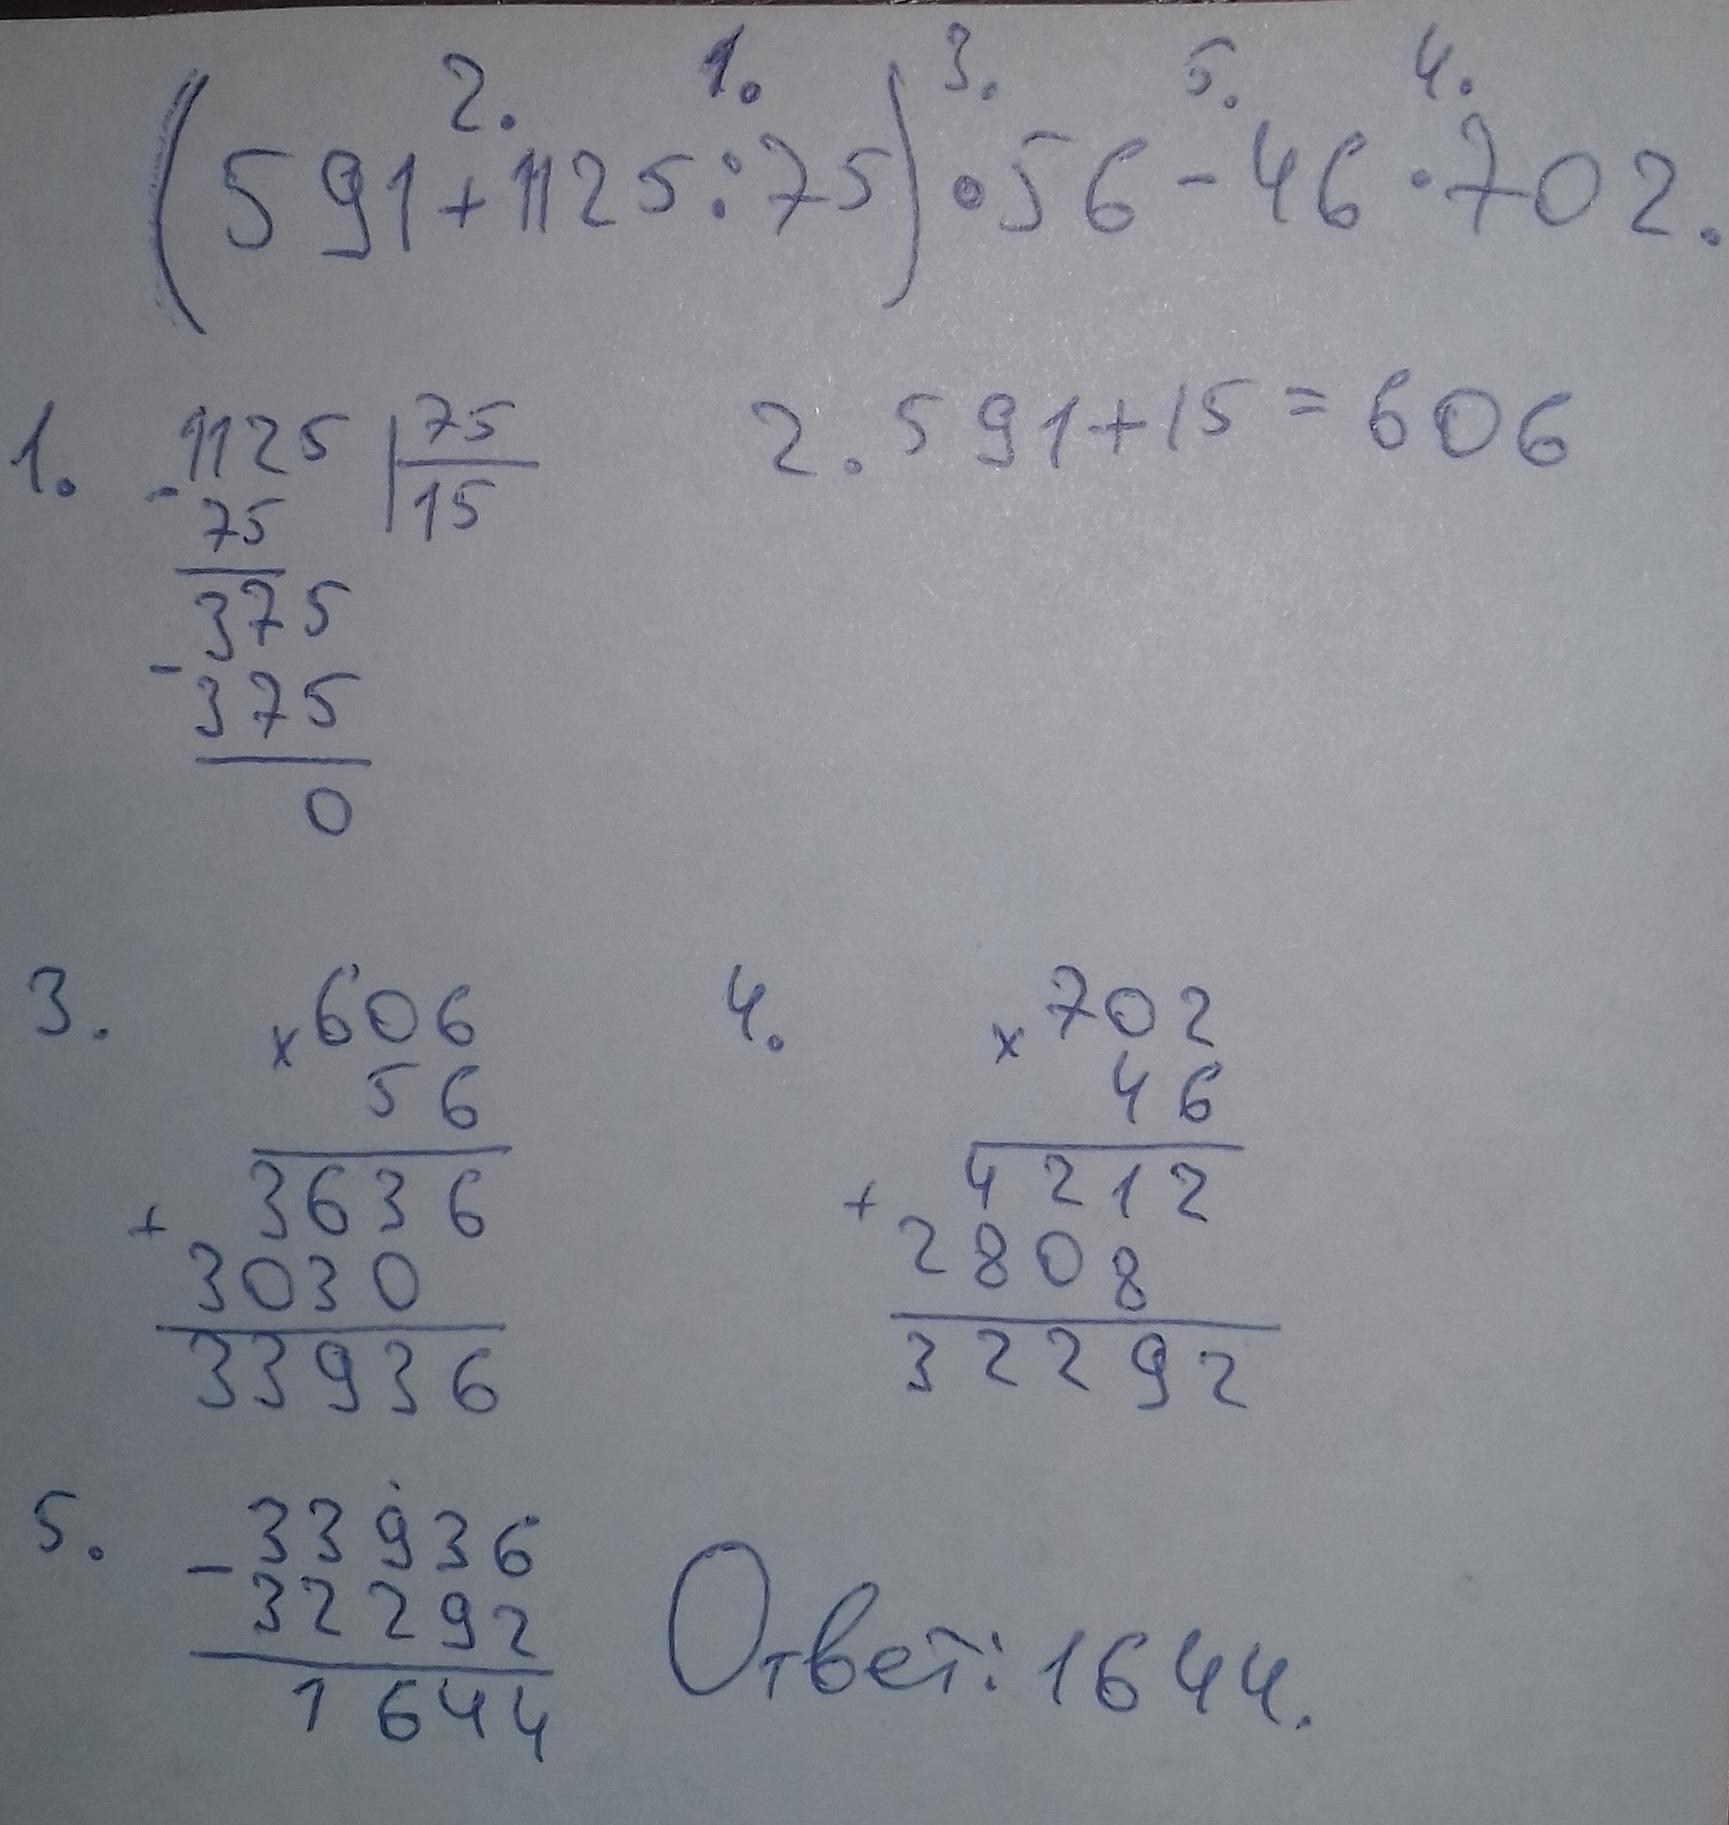 2. 1. 3. 5. 4.
(591+1125:75)•56-46·702.
1. 1125 |75
- 75 15
375
- 375
0
2. 591+15=606
3. x 606
56
3636
+ 3030
33936
4. x 702
46
4212
+ 2808
32292
5. - 33936
32292
1644
Ответ: 1644.